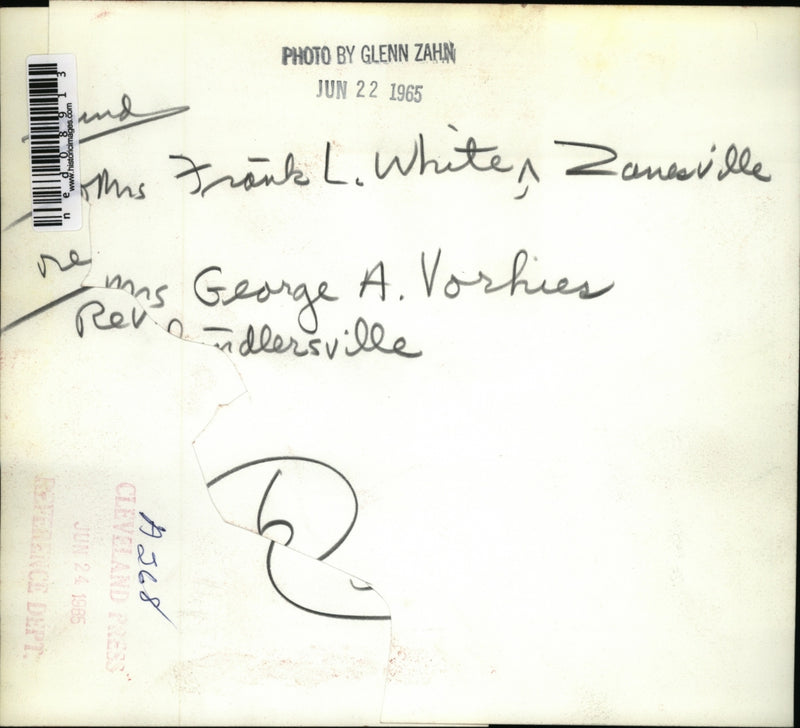 PHOTO BY GLENN ZAHN
JUN 22 1965
Mrs Frank L. White, Zanesville
Mrs George A. Vorhies
Rev
ndlersville
ned08913
www.historicimages.com
A268
CLEVELAND PRESS
JUN 24 1965
REFERENCE DEPT.